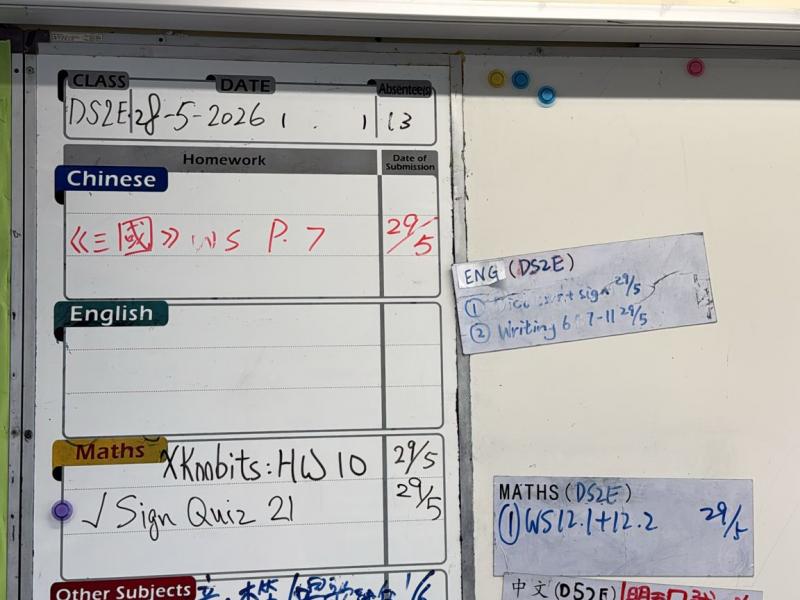 CLASS DATE Absentee(s)
DS2E 28-5-2026 13
Homework Date of Submission
Chinese
《三國》WS P.7 29/5
English
Maths
XKmbits: HW 10 29/5
√ Sign Quiz 21 29/5
Other Subjects
ENG (DS2E)
① sign 29/5
② Writing 6 7-11 29/5
MATHS (DS2E)
① WS12.1+12.2 29/5
中文(DS2E)